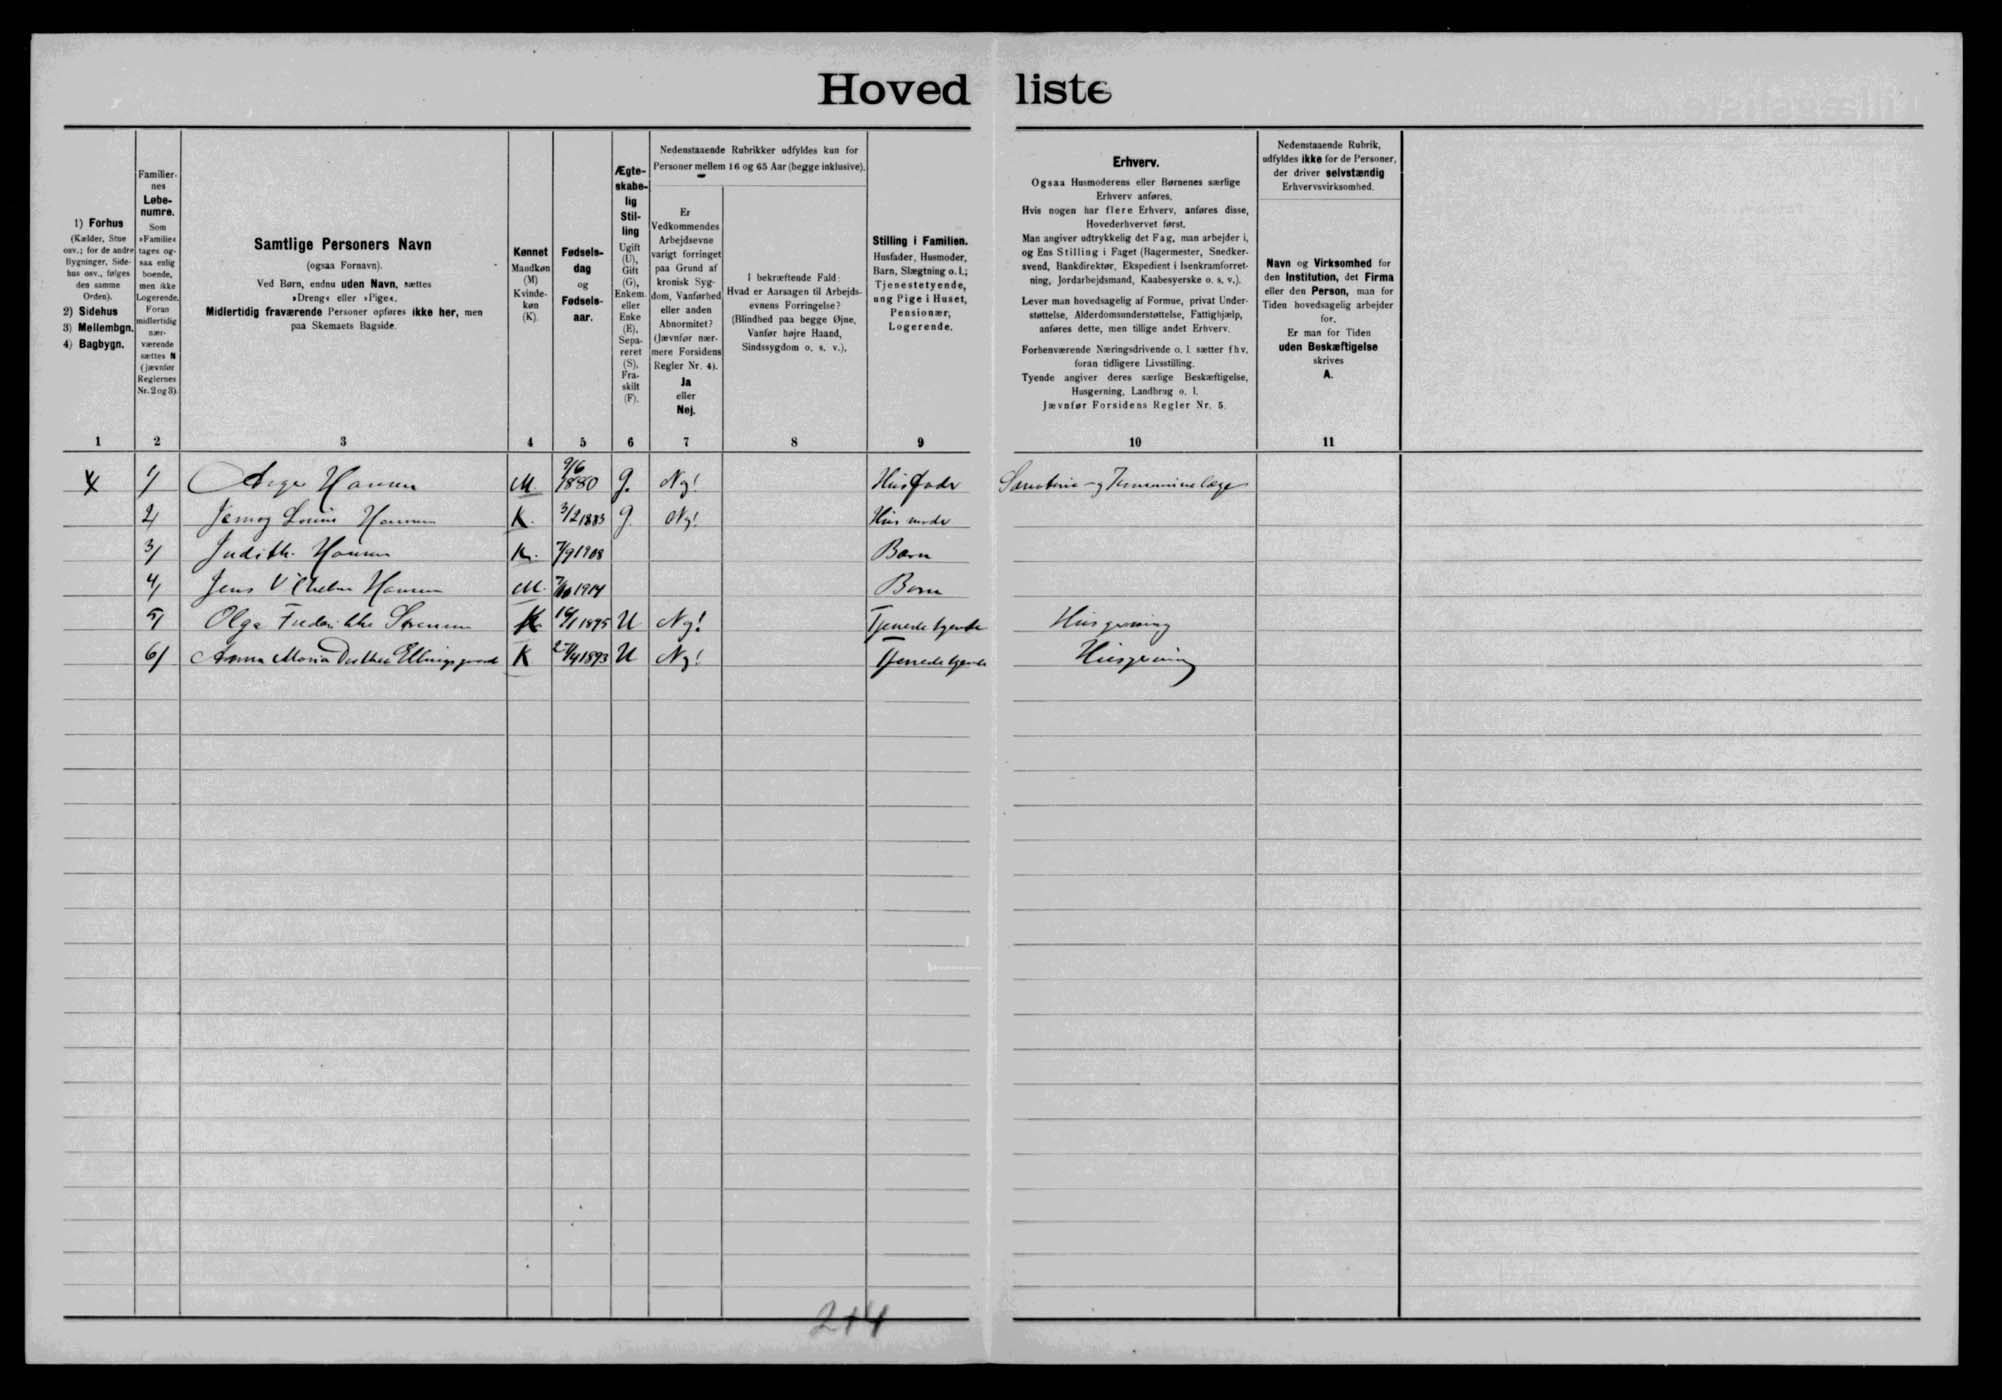 Hovedliste
1) Forhus
(Kælder, Stue
osv.; for de andre
Bygninger, Side-
hus osv., følges
den samme
Orden).
2) Sidehus
3) Mellembgn.
4) Bagbygn.
Familier-
nes
Løbe-
numre.
Som
»Familie«
tages og-
saa enlig
boende,
men ikke
Logerende.
Foran
midlertidig
nær-
værende
sættes N
(jævnfør
Reglernes
Nr. 2 og 3)
Samtlige Personers Navn
(ogsaa Fornavn).
Ved Børn, endnu uden Navn, sættes
»Dreng« eller »Pige«.
Midlertidig fraværende Personer opføres ikke her, men
paa Skemaets Bagside.
Kønnet
Mandkøn
(M)
Kvinde-
køn
(K).
Fødsels-
dag
og
Fødsels-
aar.
Ægte-
skabe-
lig
Stil-
ling
Ugift
(U),
Gift
(G),
Enkem.
eller
Enke
(E),
Sepa-
reret
(S),
Fra-
skilt
(F).
Nedenstaaende Rubrikker udfyldes kun for
Personer mellem 16 og 65 Aar (begge inklusive).
Er
Vedkommendes
Arbejdsevne
varigt forringet
paa Grund af
kronisk Syg-
dom, Vanførhed
eller anden
Abnormitet?
(Jævnfør nær-
mere Forsidens
Regler Nr. 4).
Ja
eller
Nej.
I bekræftende Fald:
Hvad er Aarsagen til Arbejds-
evnens Forringelse?
(Blindhed paa begge Øjne,
Vanfør højre Haand,
Sindssygdom o. s. v.).
Stilling i Familien.
Husfader, Husmoder,
Barn, Slægtning o. l.;
Tjenestetyende,
ung Pige i Huset,
Pensionær,
Logerende.
Erhverv.
Ogsaa Husmoderens eller Børnenes særlige
Erhverv anføres.
Hvis nogen har flere Erhverv, anføres disse,
Hovederhvervet først.
Man angiver udtrykkelig det Fag, man arbejder i,
og Ens Stilling i Faget (Bagermester, Snedker-
svend, Bankdirektør, Ekspedient i Isenkramforret-
ning, Jordarbejdsmand, Kaabesyerske o. s. v.).
Lever man hovedsagelig af Formue, privat Under-
støttelse, Alderdomsunderstøttelse, Fattighjælp,
anføres dette, men tillige andet Erhverv.
Forhenværende Næringsdrivende o. l. sætter fhv.
foran tidligere Livsstilling.
Tyende angiver deres særlige Beskæftigelse,
Husgerning, Landbrug o. l.
Jævnfør Forsidens Regler Nr. 5.
Nedenstaaende Rubrik,
udfyldes ikke for de Personer,
der driver selvstændig
Erhvervsvirksomhed.
Navn og Virksomhed for
den Institution, det Firma
eller den Person, man for
Tiden hovedsagelig arbejder
for.
Er man for Tiden
uden Beskæftigelse
skrives
A.
1 2 3 4 5 6 7 8 9 10 11
1/ Aage Hansen M. 9/6 1880 G. Nej! Husfader
2/ Louise Hansen K. 3/2 1883 G. Nej! Husmoder
3/ Judith Hansen K. 7/9 1908 Barn
4/ Jens Vilhelm Hansen M. 1914 Barn
5/ Olga Frederikke Sørensen K. 1895 U Nej! Tjenestetyende Husgerning
6/ Anna Maria Dorthea K 1893 U Nej! Tjenestetyende Husgerning
2+4